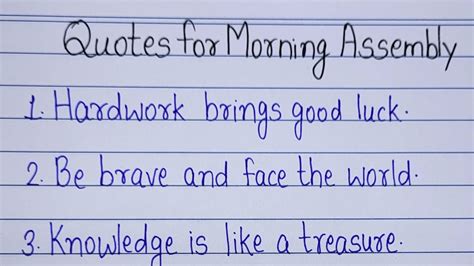 Quotes for Morning Assembly
1. Hardwork brings good luck.
2. Be brave and face the world.
3. Knowledge is like a treasure.